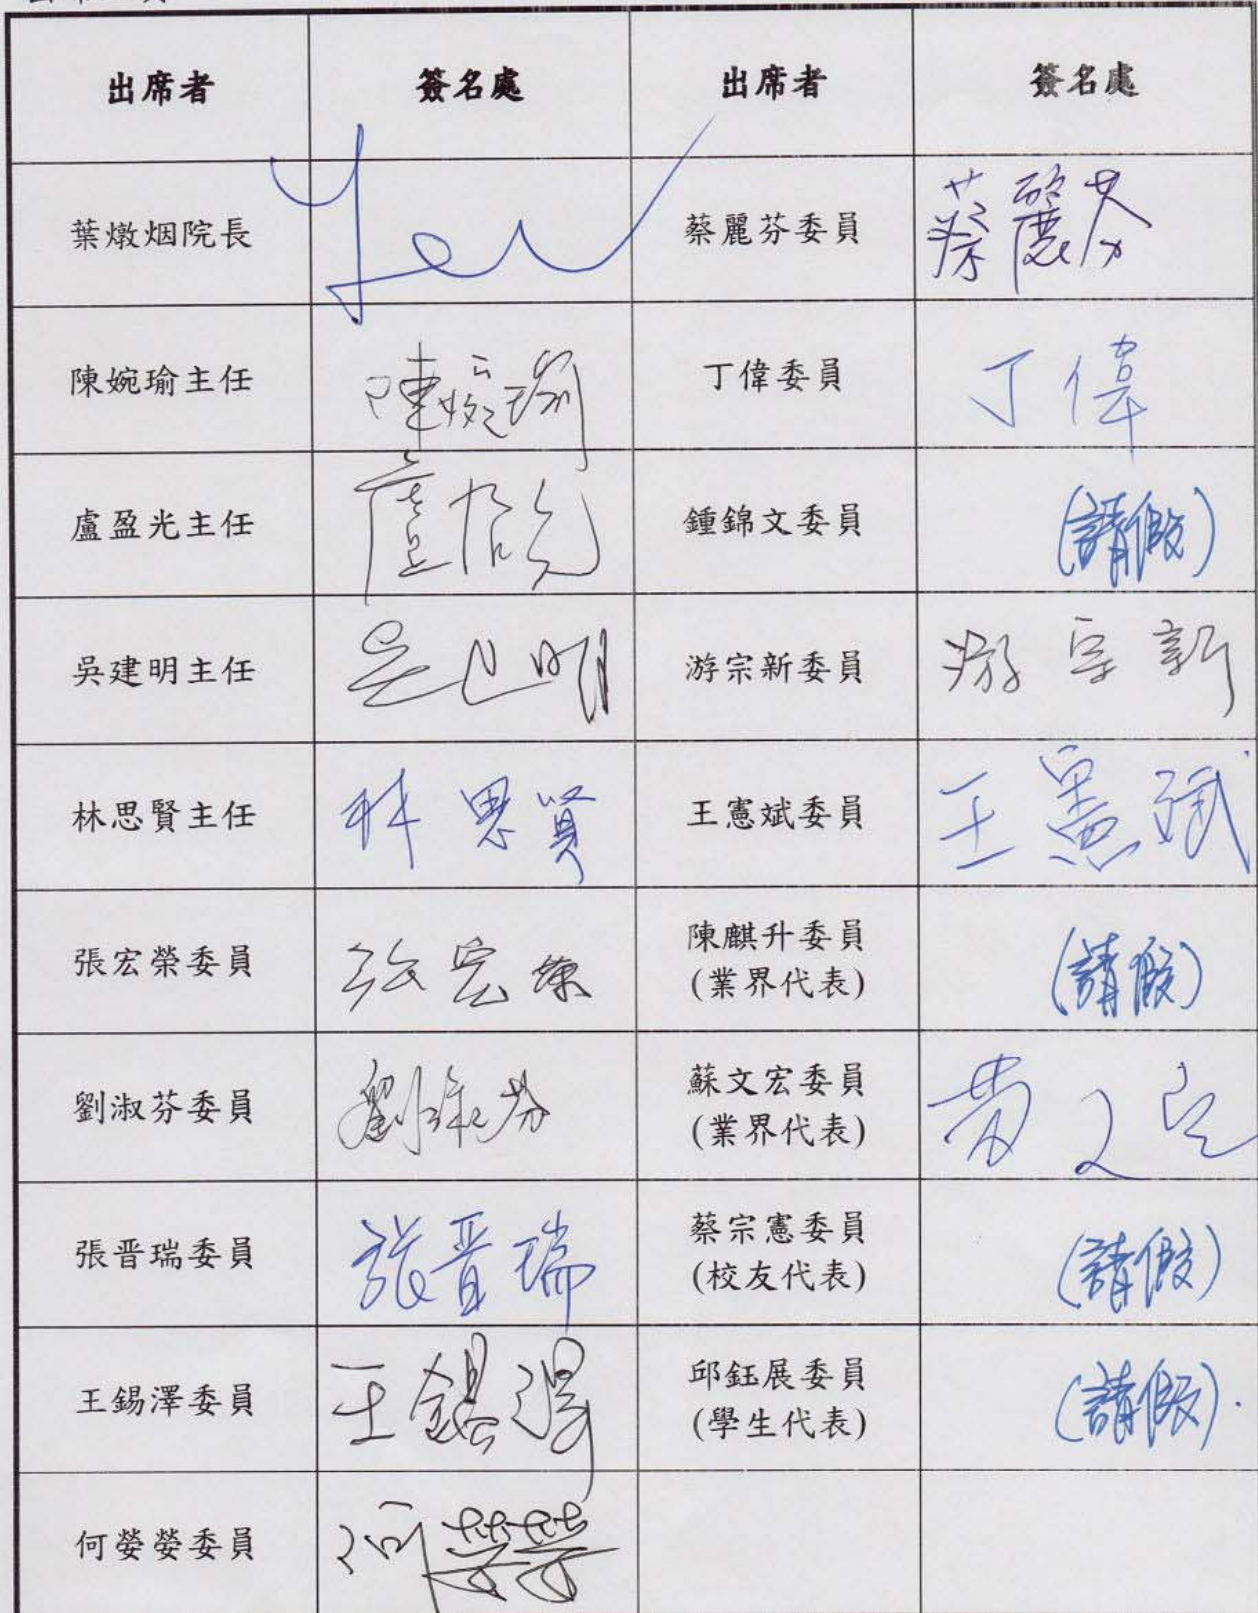 出席者 簽名處 出席者 簽名處
葉燉烟院長 Yeh 蔡麗芬委員 蔡麗芬
陳婉瑜主任 陳婉瑜 丁偉委員 丁偉
盧盈光主任 鍾錦文委員 (請假)
吳建明主任 吳建明 游宗新委員 游宗新
林思賢主任 林思賢 王憲斌委員 王憲斌
張宏榮委員 張宏榮 陳麒升委員 (請假)
(業界代表)
劉淑芬委員 劉淑芬 蘇文宏委員
(業界代表)
張晋瑞委員 張晋瑞 蔡宗憲委員 (請假)
(校友代表)
王錫澤委員 王錫澤 邱鈺展委員 (請假)
(學生代表)
何嫈嫈委員 何嫈嫈